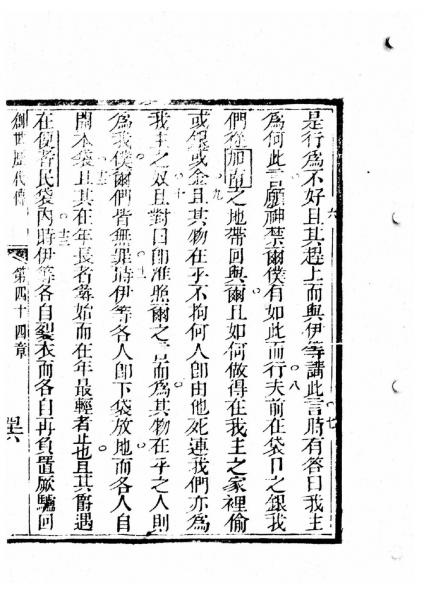 是行為不好且其趕上而與伊等講此言時有答曰我主
為何此言願神禁爾僕有如此而行夫前在袋口之銀我
們從加南之地帶回與爾且如何做得在我主之家裡偷
或銀或金且其物在乎不拘何人即由他死連我們亦為
我主之奴且對曰即准照爾之言而為其物在乎之人則
為我僕爾們皆無罪時伊等各人即下袋放地而各人自
開本袋且其在年長者募始而在年最輕者止也且其爵遇
在便者民袋內時伊等各自裂衣而各自再負置厥驢回
創世歷代傳 第四十四章
六
七
八
九
十
十一
十二
十三